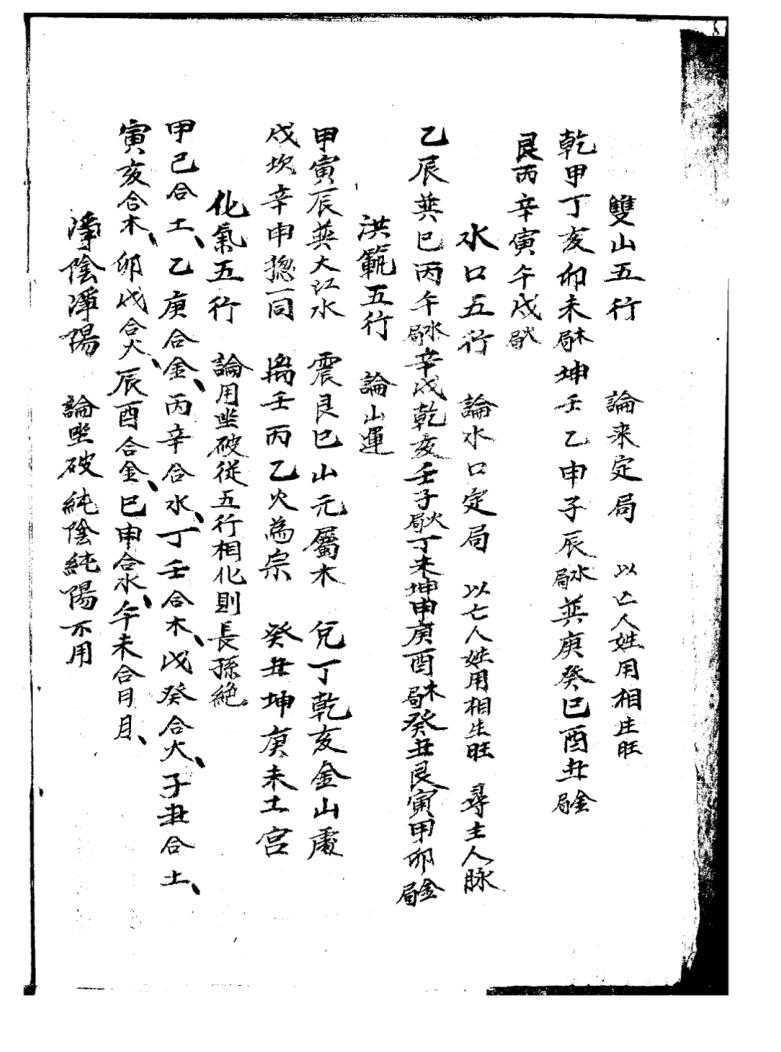 雙山五行　論来定局　以亡人姓用相生旺
乾甲丁亥卯未木局坤壬乙申子辰水局巽庚癸巳酉丑金局
艮丙辛寅午戌火局
水口五行　論水口定局　以亡人姓用相生旺　尋主人脉
乙辰巽巳丙午水局辛戌乾亥壬子火局丁未坤申庚酉木局癸丑艮寅甲卯金局
洪範五行　論山運
甲寅辰巽大江水　震艮巳山元屬木　兌丁乾亥金山處
戌坎辛申揔一同　离壬丙乙火為宗　癸丑坤庚未土宮
化氣五行　論用坐破從五行相化則長孫絶。
甲己合土、乙庚合金、丙辛合水、丁壬合木、戊癸合火、子丑合土、
寅亥合木、卯戌合火、辰酉合金、巳申合水、午未合日月、
淨陰淨陽　論坐破純陰純陽不用